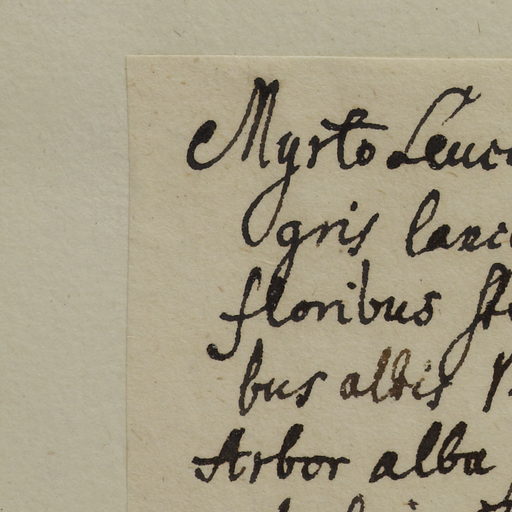 Myrto Leuc
gris lanc
floribus ste
bus altis
Arbor alba